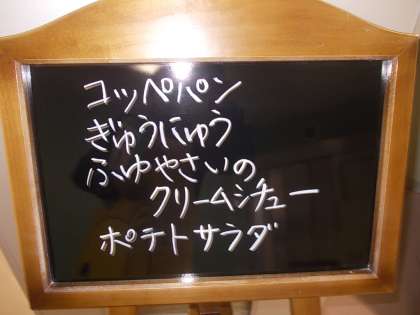 コッペパン
ぎゅうにゅう
ふゆやさいの
クリームシチュー
ポテトサラダ